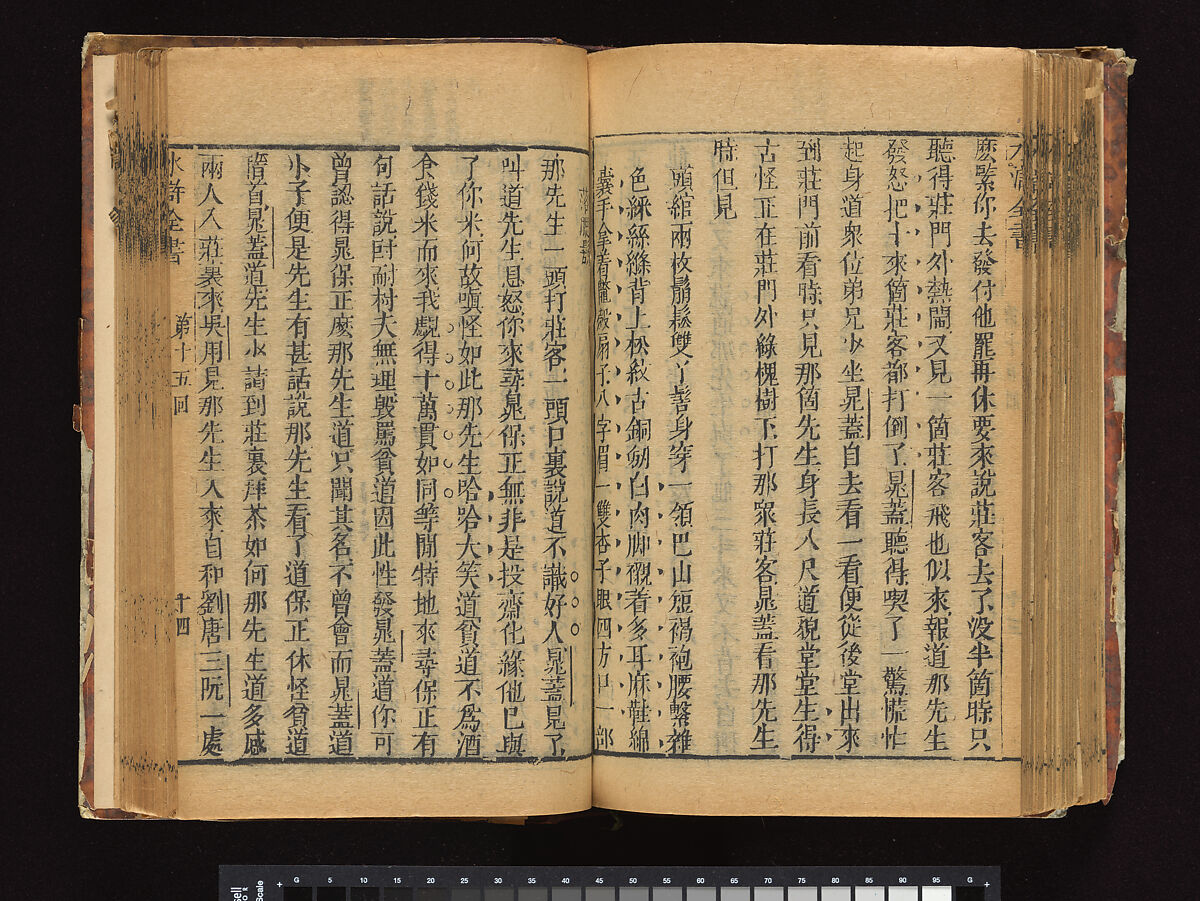 麽緊你去發付他罷再休要來說莊客去了没半箇時只
聽得莊門外熱鬧又見一箇莊客飛也似來報道那先生
發怒把十來箇莊客都打倒了晁蓋聽得喫了一驚慌忙
起身道衆位弟兄少坐晁蓋自去看一看便從後堂出來
到莊門前看時只見那箇先生身長八尺道貌堂堂生得
古怪正在莊門外綠槐樹下打那衆莊客晁蓋看那先生
時但見
頭綰兩枚鬅鬆雙丫髻身穿一領巴山短褐袍腰繫雜
色綵絲縧背上松紋古銅劒白肉脚襯着多耳麻鞋綿
囊手拿着鼈殼扇子八字眉一雙杏子眼四方口一部
落腮鬍
那先生一頭打莊客一頭口裏說道不識好人晁蓋見了
叫道先生息怒你來尋晁保正無非是投齋化緣他已與
了你米何故嗔怪如此那先生哈哈大笑道貧道不爲酒
食錢米而來我覷得十萬貫如同等閒特地來尋保正有
句話說叵耐村夫無理毀罵貧道因此性發晁蓋道你可
曾認得晁保正麽那先生道只聞其名不曾會面晁蓋道
小子便是先生有甚話說那先生看了道保正休怪貧道
稽首晁蓋道先生少請到莊裏拜茶如何那先生道多感
兩人入莊裏來吳用見那先生入來自和劉唐三阮一處
水滸全書 第十五回 十四
G 5 10 15 20 25 30 35 40 45 50 55 60 65 70 75 80 85 90 95 G